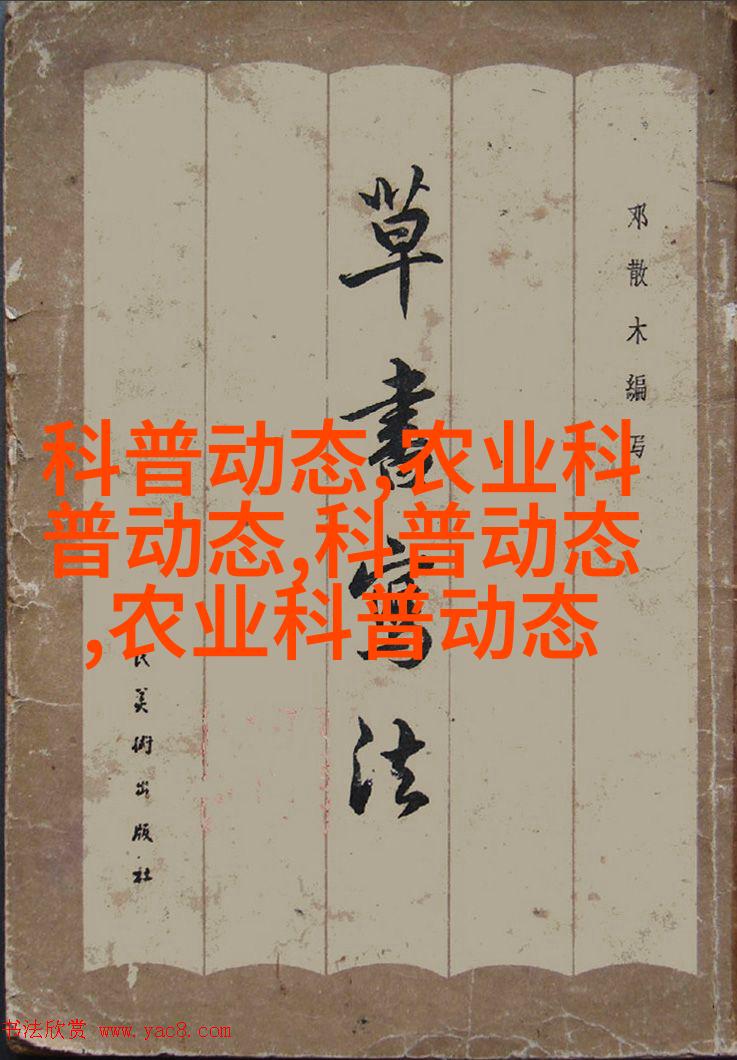 邓散木编写
草書寫法
民美術出版社
科普动态,农业科
普动态,科普动态
,农业科普动态
书法欣赏 www.yac8.com